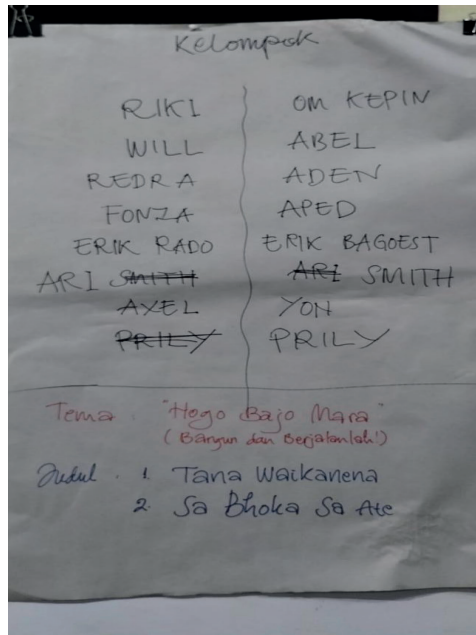 Kelompok
RIKI
WILL
REDRA
FONZA
ERIK RADO
ARI SMITH
AXEL
PRILY
OM KEPIN
ABEL
ADEN
APED
ERIK BAGOEST
ARI SMITH
YON
PRILY
Tema : "Hogo Bajo Mara"
(Bangun dan Berjalanlah!)
Judul . 1. Tana Waikanena
2. Sa Bhoka Sa Ate